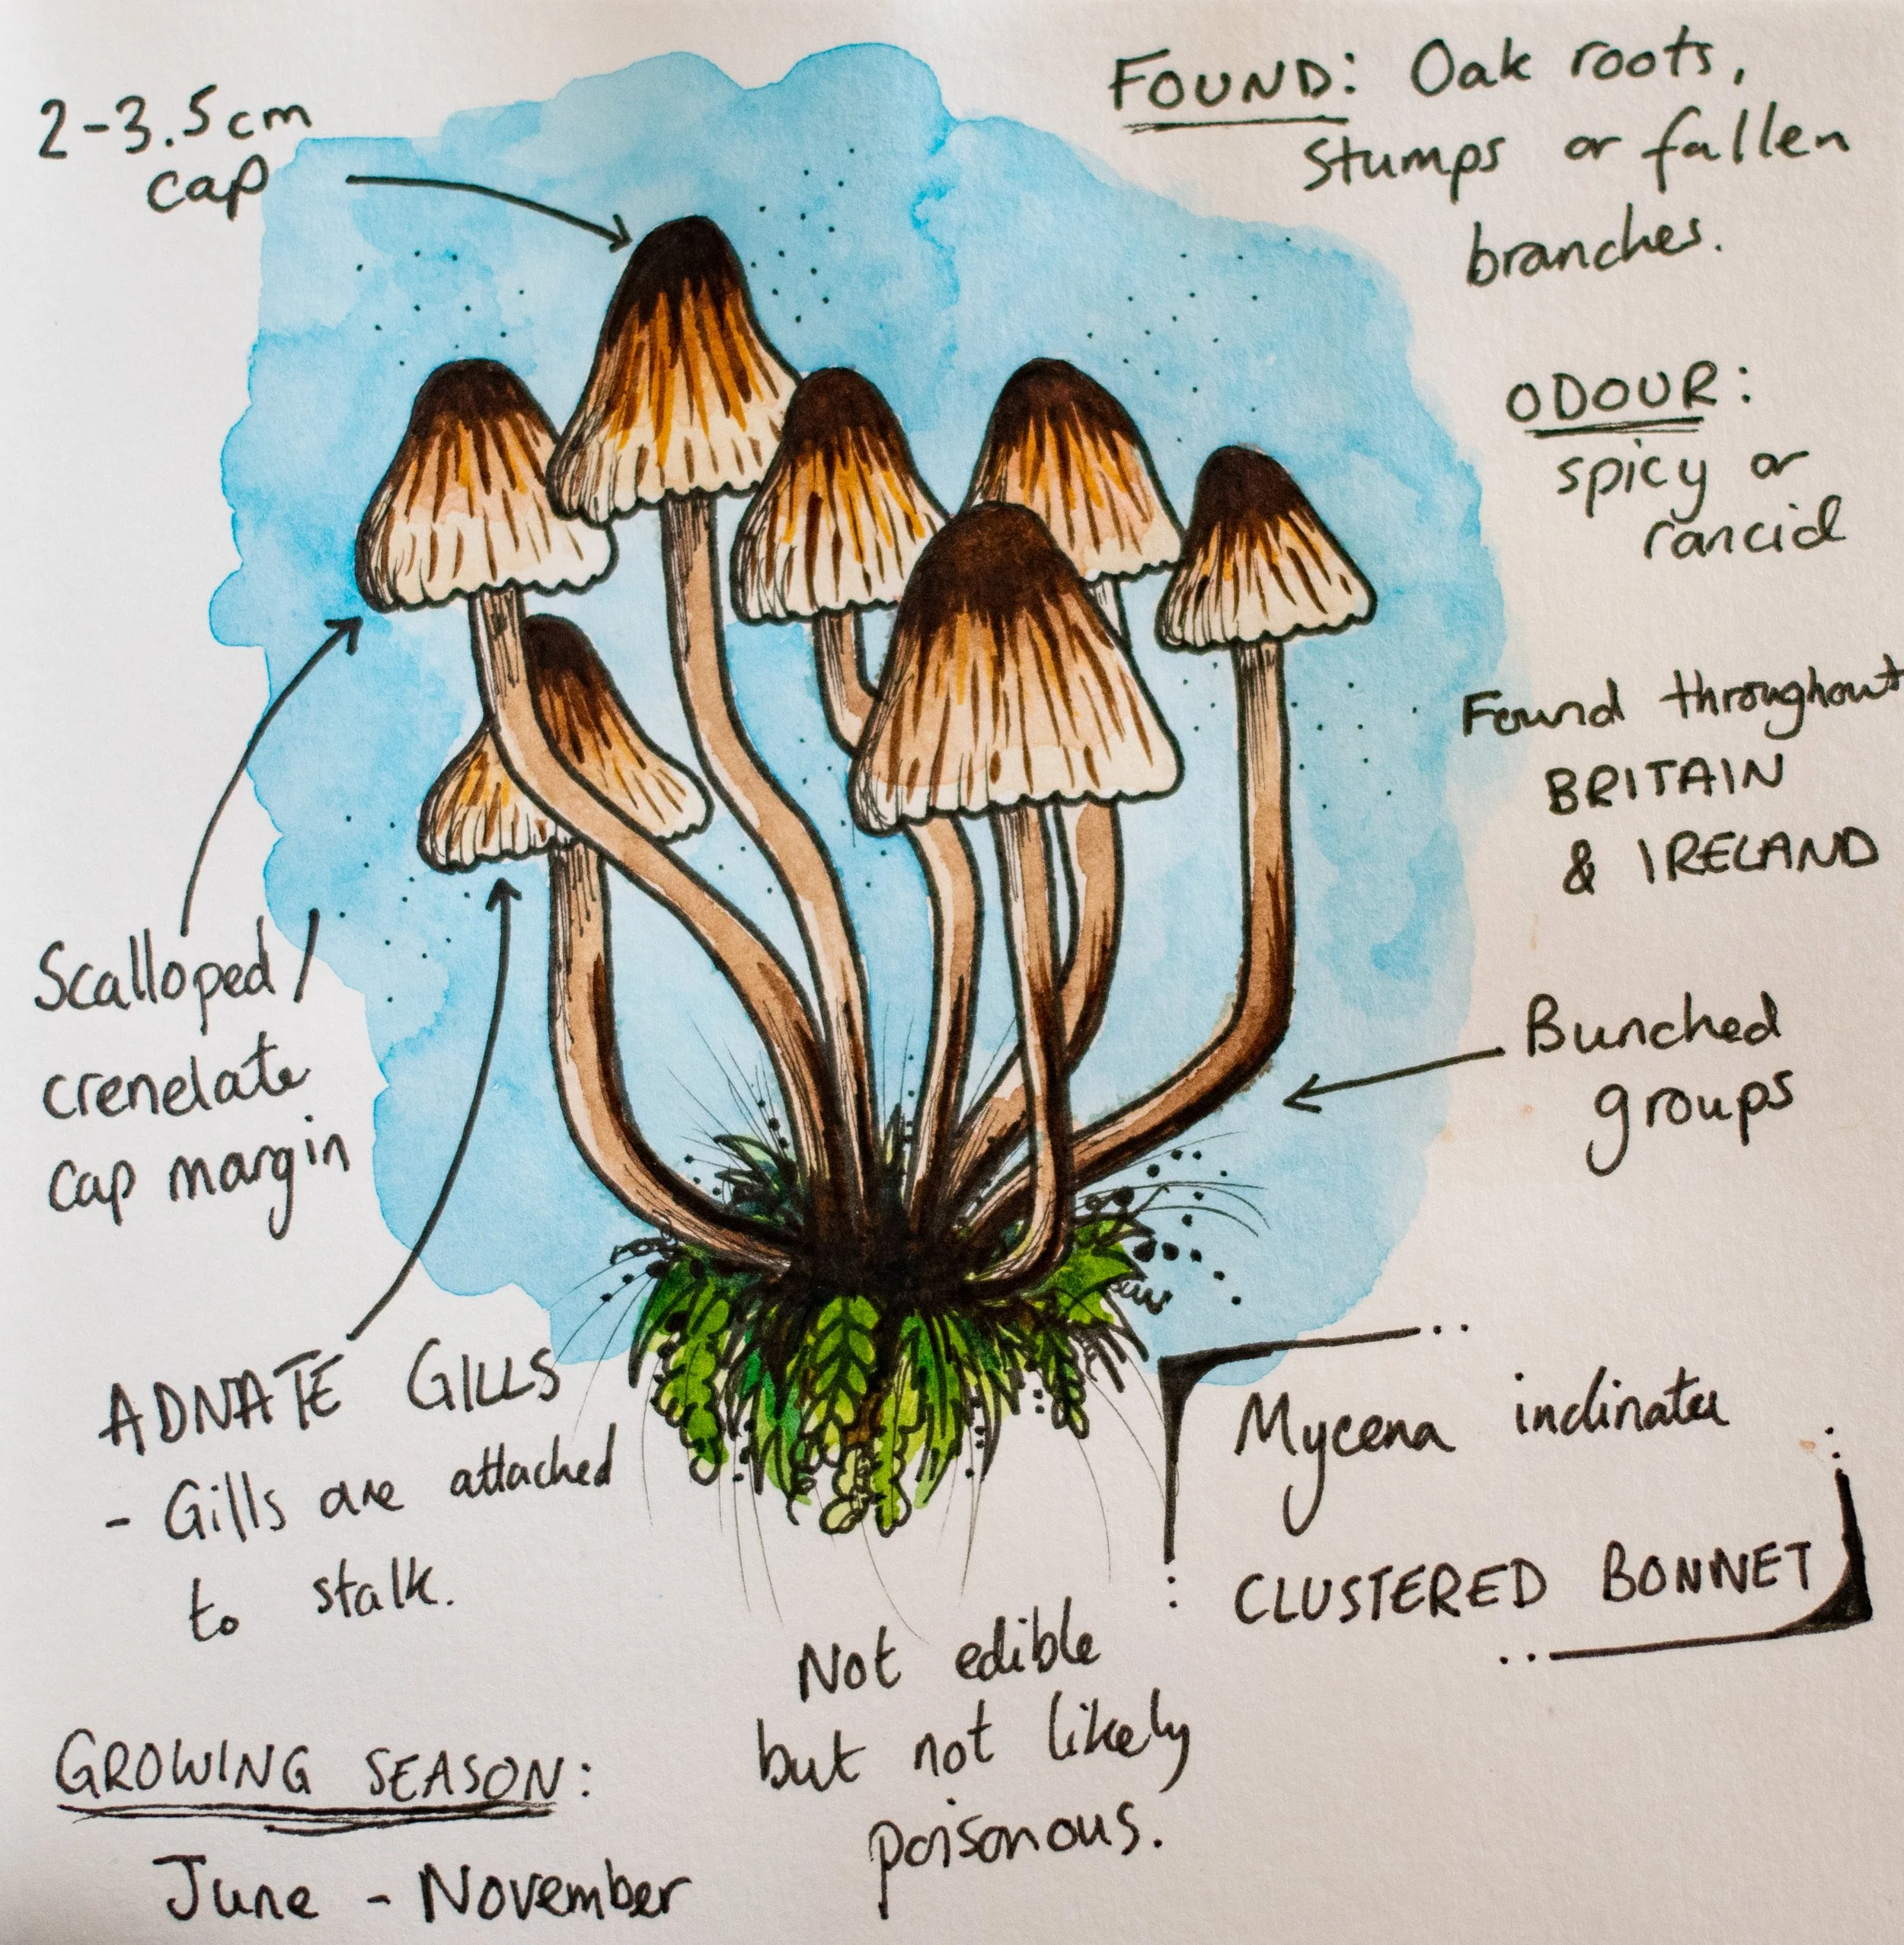 2-3.5cm
cap
FOUND: Oak roots,
stumps or fallen
branches.
ODOUR:
spicy or
rancid
Found throughout
BRITAIN
& IRELAND
Scalloped /
crenelate
cap margin
Bunched
groups
ADNATE GILLS
- Gills are attached
to stalk.
Mycena inclinata
CLUSTERED BONNET
Not edible
but not likely
poisonous.
GROWING SEASON:
June - November